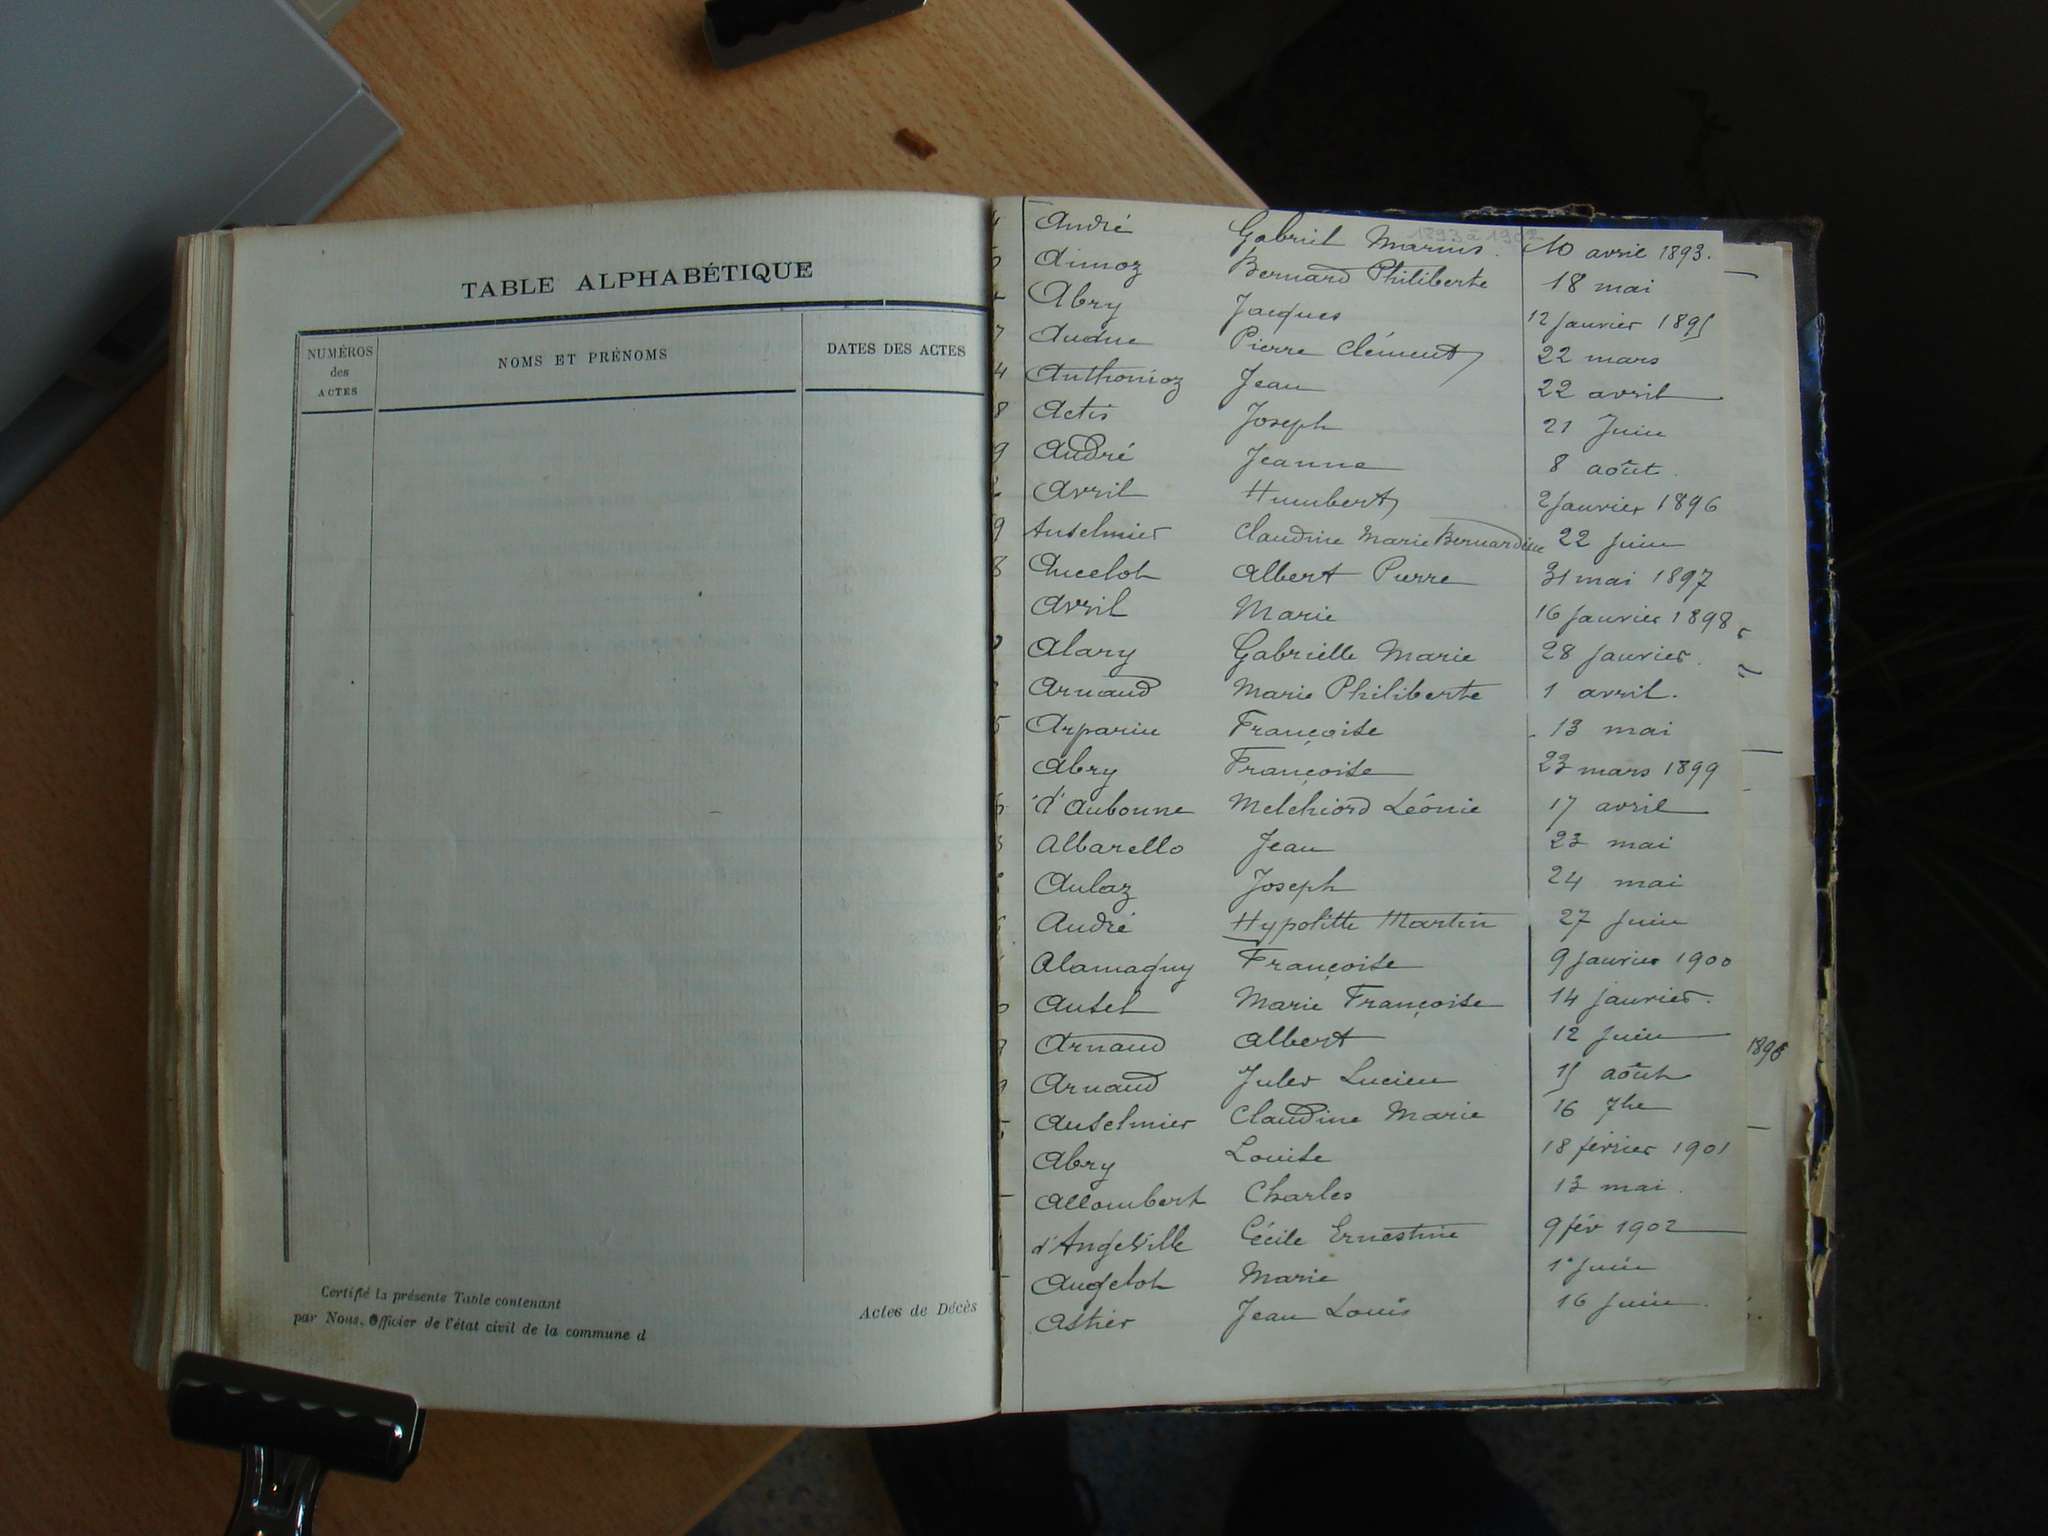 TABLE ALPHABÉTIQUE
NUMÉROS
des
ACTES
NOMS ET PRÉNOMS
DATES DES ACTES
Certifié la présente Table contenant
par Nous, Officier de l'état civil de la commune d
Actes de Décès
1893 à 1902
André Gabriel Marius 10 avril 1893.
Aimoz Bernard Philiberte 18 mai
Abry Jacques 12 Janvier 1895
Pierre Clément 22 mars
4 Anthonioz Jean 22 avril
8 Actis Joseph 21 Juin
9 André Jeanne 8 août
Avril Humbert 2 Janvier 1896
9 Anselmier Claudine Marie Bernardine 22 juin
8 Ancelot Albert Pierre 31 mai 1897
Avril Marie 16 Janvier 1898
Alary Gabrielle Marie 28 Janvier
Arnaud Marie Philiberte 1 avril.
5 Arparin Françoise 13 mai
Abry Françoise 23 mars 1899
d'Aubonne Melchiord Léonie 17 avril
Albarello Jean 23 mai
Aulaz Joseph 24 mai
André Hypolitte Martin 27 juin
Alamaguy Françoise 9 Janvier 1900
Ansel Marie Françoise 14 janvier.
Arnaud Albert 12 Juin
Arnaud Jules Lucien 15 août
Anselmier Claudine Marie 16 7bre
Abry Louise 18 février 1901
Allombert Charles 13 mai
d'Angeville Cécile Ernestine 9 fév 1902
Angelot Marie 1er Juin
Astier Jean Louis 16 Juin
1896